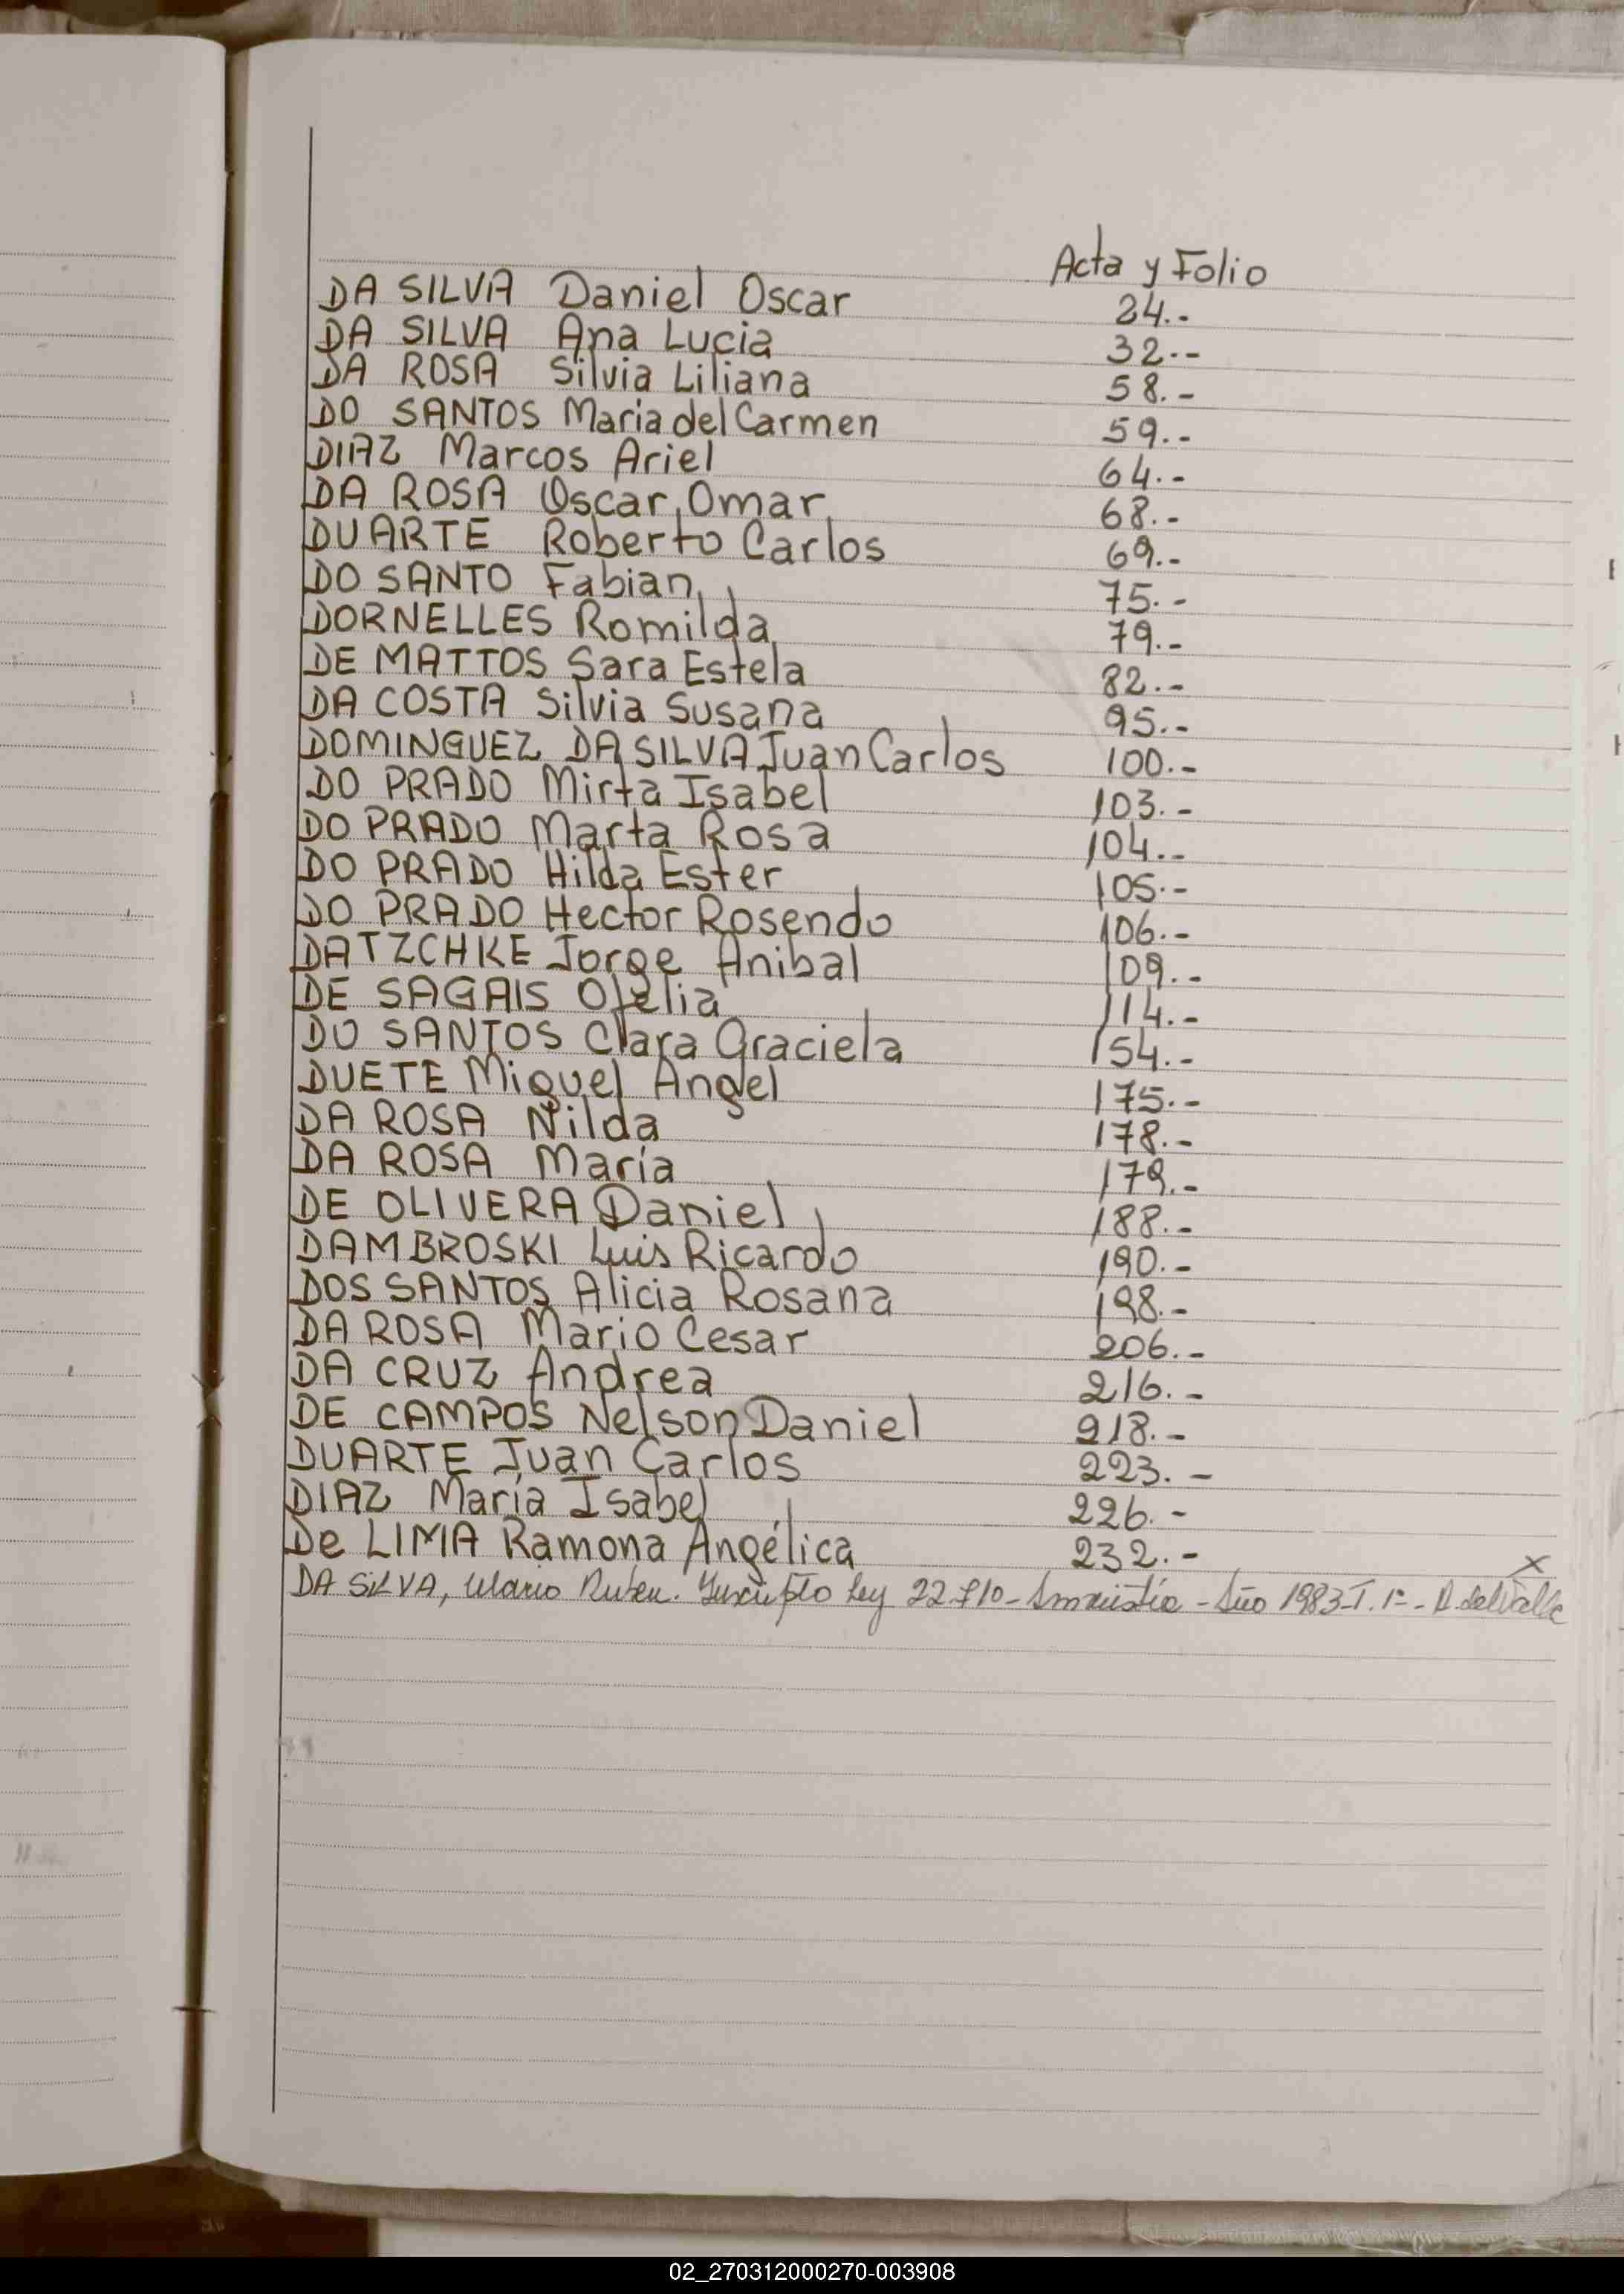 Acta y Folio
DA SILVA Daniel Oscar 24.-
DA SILVA Ana Lucia 32.-
DA ROSA Silvia Liliana 58.-
DO SANTOS Maria del Carmen 59.-
DIAZ Marcos Ariel 64.-
DA ROSA Oscar Omar 68.-
DUARTE Roberto Carlos 69.-
DO SANTO Fabian 75.-
DORNELLES Romilda 79.-
DE MATTOS Sara Estela 82.-
DA COSTA Silvia Susana 95.-
DOMINGUEZ DA SILVA Juan Carlos 100.-
DO PRADO Mirta Isabel 103.-
DO PRADO Marta Rosa 104.-
DO PRADO Hilda Ester 105.-
DO PRADO Hector Rosendo 106.-
DATZCHKE Jorge Anibal 109.-
DE SAGAIS Ofelia 114.-
DO SANTOS Clara Graciela 154.-
DUETE Miguel Angel 175.-
DA ROSA Nilda 178.-
DA ROSA María 179.-
DE OLIVERA Daniel 188.-
DAMBROSKI Luis Ricardo 190.-
DOS SANTOS Alicia Rosana 198.-
DA ROSA Mario Cesar 206.-
DA CRUZ Andrea 216.-
DE CAMPOS Nelson Daniel 218.-
DUARTE Juan Carlos 223.-
DIAZ María Isabel 226.-
De LIMA Ramona Angélica 232.-
X
DA SILVA, Mario Ruben. Inscripto Ley 22.710- Amnistía - Año 1983-T. 1º- A. del Valle
02_270312000270-003908